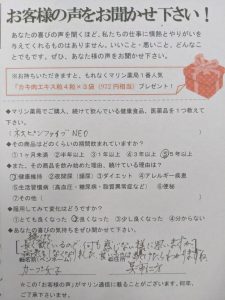 お客様の声をお聞かせ下さい!
あなたの喜びの声を聞くほど、私たちの仕事に情熱とやりがいを
与えてくれるものはありません。いいこと・悪いこと、どんなこ
とでもです。ぜひ、あなた様の声をお聞かせ下さい。
※お持ちいただきますと、もれなくマリン薬局1番人気
『カキ肉エキス粒4粒×3袋(972円相当)プレゼント!
◆マリン薬局でご購入、続けて飲んでいる健康食品、医薬品を1つ教えて
下さい。
NEO
◆その商品はどのくらいの期間飲まれていますか?
①1ヶ月未満 ②半年以上 ③1年以上 ④3年以上 ⑤5年以上
◆また、その商品を飲み始めた理由、続けている理由は?
①健康維持 ②夜間尿(頻尿) ③ダイエット ④アレルギー疾患
⑤生活習慣病(高血圧・糖尿病・脂質異常症など) ⑥便秘
⑦その他(
◆服用してみて変化はどうですか?
①とても良くなった ②良くなった ③少し良くなった ④分からない
◆あなたの気持ちをぜひお聞かせ下さい。
長く飲んでいるので
カープ女子
★この「お客様の声」がマリン通信に載ることがございます。何卒、
ご了承下さいませ。